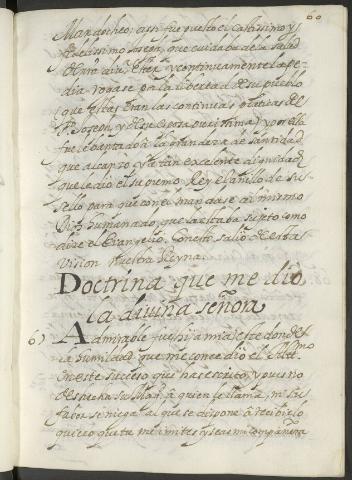 60
Mardocheo, assi fue puesto el castissimo y
fidelissimo Joseph, que cuidaba de la salud
de ntra divina Ester, y continuamente la pe-
dia rogase por la libertad de su pueblo
que estas eran las continuas platicas del
Sto Joseph, y de su Esposa purissima, y por ella
fue levantado a la grandeza de santidad
que alcanzo, y a tan excelente dignidad
que le dio el supremo Rey el anillo de su
sello para que con el mandase al mismo
Dios humanado, que le estaba sujeto como
dice el Evangelio. Con esto salio de esta
vision nuestra Reyna.
Doctrina que me dio
la divina señora
67 Admirable fue hija mia este don de
la humildad que me concedio el Altissimo
en este suceso que has escrito, y pues no
desecha su Magd a quien le llama, ni su
favor se niega al que se dispone a recibirlo
quiero que tu me imites y seas mi compañera